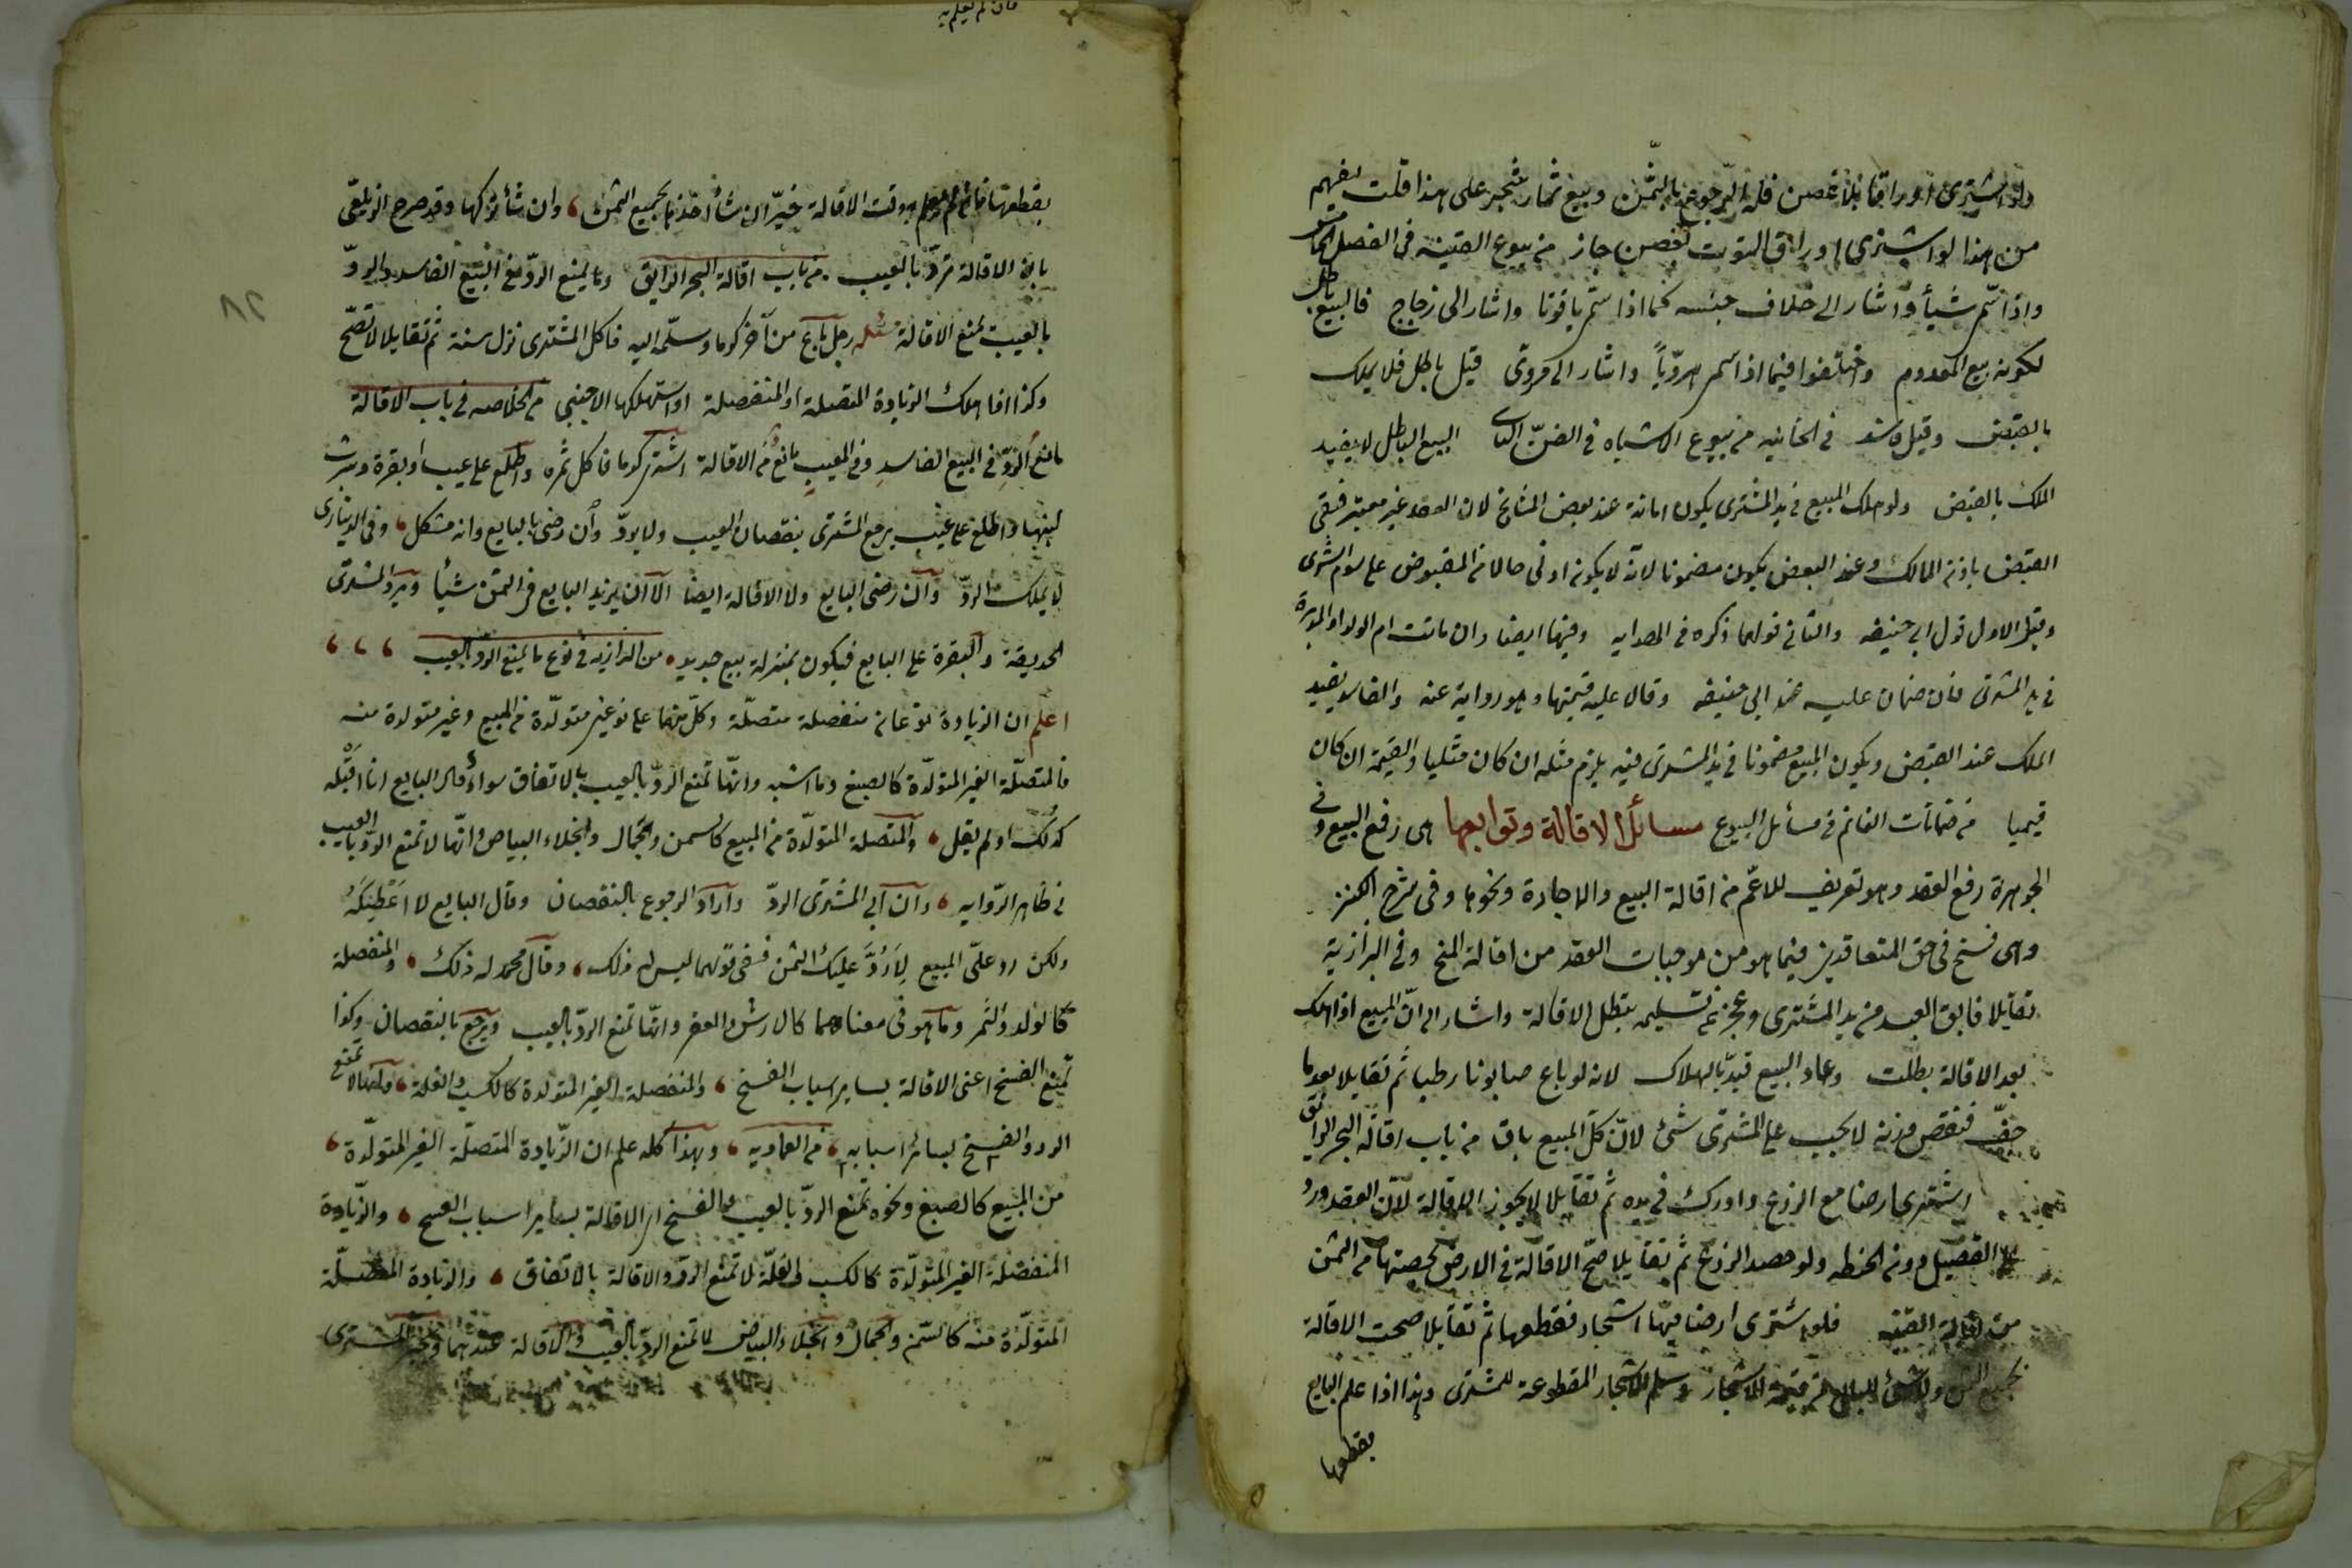 ولو اشترى اوراقا بلا غصن فله الرجوع بالثمن وبيع ثمار شجر على هذا قلت يفهم
من هذا لو اشترى اوراق التوت بغصن جاز من بيوع القنية فى الفصل
واذا سمى شيأ واشار الى خلاف جنسه كما اذا سمى ياقوتا واشار الى زجاج فالبيع باطل
لكونه بيع المعدوم واختلفوا فيما اذا سمى هرويا واشار الى مروى قيل باطل فلا يملك
بالقبض وقيل فاسد فى الخانيه من بيوع الاشباه فى الفن الثانى البيع الباطل لا يفيد
الملك بالقبض ولو هلك المبيع فى يد المشترى يكون امانة عند بعض المشايخ لان العقد غير معتبر فبقى
القبض باذن المالك وعند البعض يكون مضمونا لانه لا يكون ادنى حالا من المقبوض على سوم الشرى
وقيل الاول قول ابى حنيفه والثانى قولهما ذكره فى الهدايه وفيها ايضا وان ماتت ام الولد او المدبرة
فى يد المشترى فلا ضمان عليه عند ابى حنيفه وقالا عليه قيمتها وهو رواية عنه والفاسد يفيد
الملك عند القبض ويكون المبيع مضمونا فى يد المشترى فيه يلزم مثله ان كان مثليا والقيمة ان كان
قيميا من ضمانات الغانم فى مسائل البيوع مسائل الاقالة وتوابعها هى رفع البيع وفى
الجوهرة رفع العقد وهو تعريف للاعم من اقالة البيع والاجارة ونحوها وفى شرح الكنز
وهى فسخ فى حق المتعاقدين فيما هو من موجبات العقد من اقالة المنح وفى البزازية
تقايلا فابق العبد من يد المشترى وعجز عن تسليمه بتطل الاقالة واشار الى ان المبيع اذا هلك
بعد الاقالة بطلت وعاد البيع قيد بالهلاك لانه لو باع صابونا رطبا ثم تقايلا بعدما
جف فنقص وزنه لا يجب على المشترى شئ لان كل المبيع باق من باب اقالة البحر الرائق
اشترى ارضا مع الزرع وادرك فى يده ثم تقايلا لا يجوز الاقالة لان العقد ورد
على القصيل دون الحنطه ولو حصد الزرع ثم تقايلا صح الاقالة فى الارض بحصتها من الثمن
من اقالة القنيه فلو اشترى ارضا فيها اشجار فقطعها ثم تقايلا صحت الاقالة
بجميع الثمن ولا شئ للبايع من قيمة الاشجار وسلم الاشجار المقطوعة للمشترى وهذا اذا علم البايع
بقطعها
فان لم يعلم به
بقطعها فان لم يعلم به وقت الاقالة خير ان شأ اخذها بجميع الثمن وان شأ تركها وقد صرح الزيلعى
بان الاقالة ترد بالعيب من باب اقالة البحر الرايق وما يمنع الرد فى البيع الفاسد والرد
بالعيب يمنع الاقالة مسئله رجل باع من آخر كرما وسلمه اليه فاكل المشترى نزل سنة ثم تقايلا لا تصح
وكذا اذا هلك الزيادة المتصلة او المنفصلة او استهلكها الاجنبى من الخلاصه فى باب الاقالة
مانع الرد فى البيع الفاسد وفى المعيب مانع من الاقالة اشترى كرما فاكل ثمره واطلع على عيب او بقرة وشرب
لبنها واطلع على عيب يرجع المشترى بنقصان العيب ولا يرد وان رضى البايع وانه مشكل وفى الدينارى
لا يملك الرد وان رضى البايع ولا الاقالة ايضا الا ان يزيد البايع فى الثمن شيأ ويرد المشترى
الحديقة والبقرة على البايع فيكون بمنزلة بيع جديد من البزازيه فى نوع ما يمنع الرد بالعيب
اعلم ان الزيادة نوعان منفصلة متصلة وكل منهما على نوعين متولدة من المبيع وغير متولدة منه
فالمتصلة الغير المتولدة كالصبغ وما اشبه وانها تمنع الرد بالعيب بالاتفاق سواء قال البايع انا اقبله
كذلك او لم يقل والمتصلة المتولدة من المبيع كالسمن والجمال وانجلاء البياض وانها لا تمنع الرد بالعيب
فى ظاهر الروايه وان ابى المشترى الرد واراد الرجوع بالنقصان وقال البايع لا اعطيكه
ولكن رد على المبيع لارد عليك الثمن ففى قولهما ليس له ذلك وقال محمد له ذلك والمنفصلة
كالولد والثمر وما هو فى معناهما كالارش والعقر وانها تمنع الرد بالعيب ويرجع بالنقصان وكذا
تمنع الفسخ اعنى الاقالة بساير اسباب الفسخ والمنفصلة الغير المتولدة كالكسب والغلة لا تمنع
الرد والفسخ بسائر اسبابه من العماديه وبهذا كله علم ان الزيادة المتصلة الغير المتولدة
من المبيع كالصبغ ونحوه تمنع الرد بالعيب والفسخ اى الاقالة بساير اسباب الفسخ والزيادة
المنفصلة الغير المتولدة كالكسب والغلة لا تمنع الرد والاقالة بالاتفاق والزيادة المتصلة
المتولدة منه كالسمن والجمال وانجلاء البياض لا تمنع الرد بالعيب والاقالة عندهما المشترى
٨٢